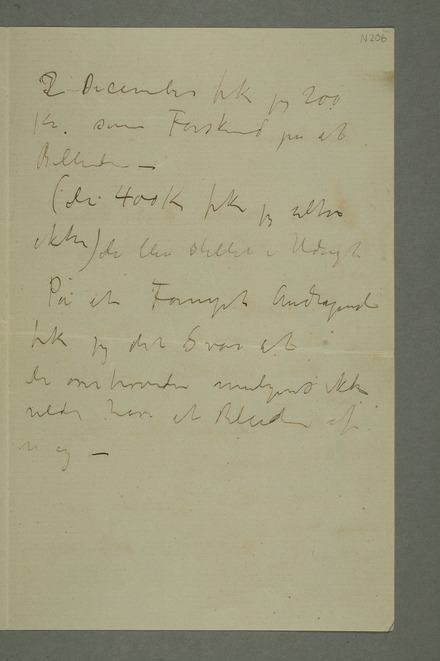 N 206
2 December fik jeg 200
Kr. som Forskud på et
Billede –
(de 400 Kr fik jeg altså
ikke) de blev stillet i Udsigt
På et Fornyet Andragende
fik jeg det Svar at
de overhovedet ikke
vilde have et Billede af
mig –